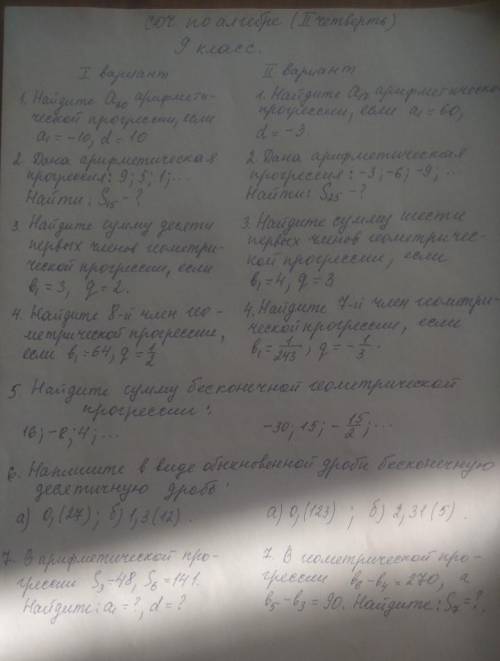 СОЧ по алгебре (II четверть)
9 класс.
I вариант
1. Найдите a₃₀ арифмети-
ческой прогрессии, если
a₁ = -10, d = 10
2. Дана арифметическая
прогрессия: 9; 5; 1; ...
Найти: S₁₅ - ?
3. Найдите сумму десяти
первых членов геометри-
ческой прогрессии, если
b₁ = 3, q = 2.
4. Найдите 8-й член гео-
метрической прогрессии,
если b₁ = 64, q = 1/2
II вариант
1. Найдите арифметической
прогрессии, если a₁ = 60,
d = -3
2. Дана арифметическая
прогрессия: -3; -6; -9; ...
Найти: S₂₅ - ?
3. Найдите сумму шести
первых членов геометричес-
кой прогрессии, если
b₁ = 4, q = 3
4. Найдите 7-й член геометри-
ческой прогрессии, если
b₁ = 1/243, q = -1/3.
5 Найдите сумму бесконечной геометрической
прогрессии:
16; -8; 4; ... -30; 15; -15/2; ...
6. Напишите в виде обыкновенной дроби бесконечную
десятичную дробь:
а) 0,(27); б) 1,3(12). а) 0,(123); б) 2,31(5).
7. В арифметической про-
грессии S₃ = 48, S₆ = 141.
Найдите: a₁ = ?, d = ?
7. В геометрической про-
грессии b₆ - b₄ = 270, а
b₅ - b₃ = 90. Найдите: S₇ = ?